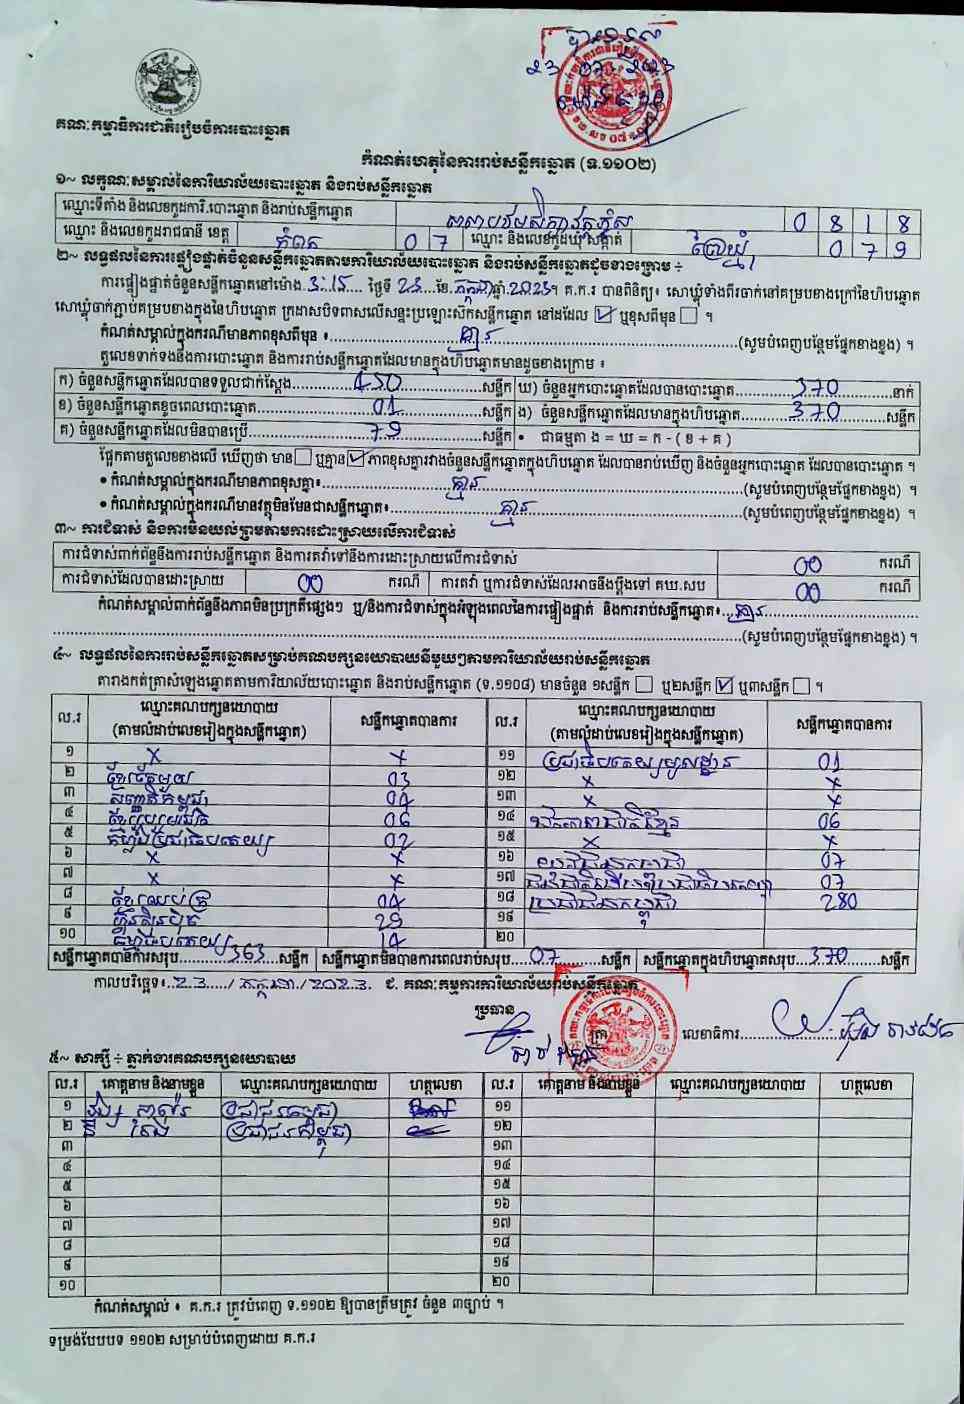 គណៈកម្មាធិការជាតិរៀបចំការបោះឆ្នោត
កំណត់ហេតុនៃការរាប់សន្លឹកឆ្នោត (ទ.១១០២)
១~ លក្ខណៈសម្គាល់នៃការិយាល័យបោះឆ្នោត និងរាប់សន្លឹកឆ្នោត
ឈ្មោះទីតាំង និងលេខកូដការិ.បោះឆ្នោត និងរាប់សន្លឹកឆ្នោត 0 8 1 8
ឈ្មោះ និងលេខកូដរាជធានី ខេត្ត កំពត 0 7 ឈ្មោះ និងលេខកូដឃុំ សង្កាត់ 0 7 9
២~ លទ្ធផលនៃការផ្ទៀងផ្ទាត់ចំនួនសន្លឹកឆ្នោតតាមការិយាល័យបោះឆ្នោត និងរាប់សន្លឹកឆ្នោតដូចខាងក្រោម ÷
ការផ្ទៀងផ្ទាត់ចំនួនសន្លឹកឆ្នោតនៅម៉ោង 3:15 ថ្ងៃទី 23 ខែ កក្កដា ឆ្នាំ 2023។ គ.ក.រ បានពិនិត្យ៖ សោឃ្លុំទាំងពីរចាក់នៅគម្របខាងក្រៅនៃហិបឆ្នោត
សោឃ្លុំចាក់ភ្ជាប់គម្របខាងក្នុងនៃហិបឆ្នោត ក្រដាសបិទពាសលើសន្ទះប្រឡោះស៊កសន្លឹកឆ្នោត នៅដដែល ☑ ឬខុសពីមុន ☐ ។
កំណត់សម្គាល់ក្នុងករណីមានភាពខុសពីមុន ៖ គ្មាន (សូមបំពេញបន្ថែមផ្នែកខាងខ្នង) ។
តួលេខទាក់ទងនឹងការបោះឆ្នោត និងការរាប់សន្លឹកឆ្នោតដែលមានក្នុងហិបឆ្នោតមានដូចខាងក្រោម ៖
ក) ចំនួនសន្លឹកឆ្នោតដែលបានទទួលជាក់ស្តែង 450 សន្លឹក ឃ) ចំនួនអ្នកបោះឆ្នោតដែលបានបោះឆ្នោត 370 នាក់
ខ) ចំនួនសន្លឹកឆ្នោតខូចពេលបោះឆ្នោត 01 សន្លឹក ង) ចំនួនសន្លឹកឆ្នោតដែលមានក្នុងហិបឆ្នោត 370 សន្លឹក
គ) ចំនួនសន្លឹកឆ្នោតដែលមិនបានប្រើ 79 សន្លឹក • ជាធម្មតា ង = ឃ = ក - ( ខ + គ )
ផ្អែកតាមតួលេខខាងលើ ឃើញថា មាន ☐ ឬគ្មាន ☑ ភាពខុសគ្នារវាងចំនួនសន្លឹកឆ្នោតក្នុងហិបឆ្នោត ដែលបានរាប់ឃើញ និងចំនួនអ្នកបោះឆ្នោត ដែលបានបោះឆ្នោត ។
• កំណត់សម្គាល់ក្នុងករណីមានភាពខុសគ្នា៖ គ្មាន (សូមបំពេញបន្ថែមផ្នែកខាងខ្នង) ។
• កំណត់សម្គាល់ក្នុងករណីមានវត្ថុមិនមែនជាសន្លឹកឆ្នោត៖ គ្មាន (សូមបំពេញបន្ថែមផ្នែកខាងខ្នង) ។
៣~ ការជំទាស់ និងការមិនយល់ព្រមតាមការដោះស្រាយលើការជំទាស់
ការជំទាស់ពាក់ព័ន្ធនឹងការរាប់សន្លឹកឆ្នោត និងការតវ៉ាទៅនឹងការដោះស្រាយលើការជំទាស់ 00 ករណី
ការជំទាស់ដែលបានដោះស្រាយ 00 ករណី ការតវ៉ា ឬការជំទាស់ដែលអាចនឹងប្តឹងទៅ គឃ.សប 00 ករណី
កំណត់សម្គាល់ពាក់ព័ន្ធនឹងភាពមិនប្រក្រតីផ្សេងៗ ឬ/និងការជំទាស់ក្នុងអំឡុងពេលនៃការផ្ទៀងផ្ទាត់ និងការរាប់សន្លឹកឆ្នោត៖ គ្មាន
(សូមបំពេញបន្ថែមផ្នែកខាងខ្នង) ។
៤~ លទ្ធផលនៃការរាប់សន្លឹកឆ្នោតសម្រាប់គណបក្សនយោបាយនីមួយៗតាមការិយាល័យរាប់សន្លឹកឆ្នោត
តារាងកត់ត្រាសំឡេងឆ្នោតតាមការិយាល័យបោះឆ្នោត និងរាប់សន្លឹកឆ្នោត (ទ.១១០៨) មានចំនួន ១សន្លឹក ☐ ឬ២សន្លឹក ☑ ឬ៣សន្លឹក ☐ ។
ល.រ ឈ្មោះគណបក្សនយោបាយ (តាមលំដាប់លេខរៀងក្នុងសន្លឹកឆ្នោត) សន្លឹកឆ្នោតបានការ ល.រ ឈ្មោះគណបក្សនយោបាយ (តាមលំដាប់លេខរៀងក្នុងសន្លឹកឆ្នោត) សន្លឹកឆ្នោតបានការ
១ x x ១១ ប្រជាធិបតេយ្យមូលដ្ឋាន 01
២ ខ្មែរតែមួយ 03 ១២ x x
៣ សញ្ជាតិកម្ពុជា 04 ១៣ x x
៤ 06 ១៤ ឯកភាពជាតិខ្មែរ 06
៥ កម្លាំងប្រជាធិបតេយ្យ 02 ១៥ x x
៦ x x ១៦ 07
៧ x x ១៧ 07
៨ 04 ១៨ ប្រជាជនកម្ពុជា 280
៩ ហ៊្វុនស៊ិនប៉ិច 29 ១៩
១០ 14 ២០
សន្លឹកឆ្នោតបានការសរុប 363 សន្លឹក សន្លឹកឆ្នោតមិនបានការពេលរាប់សរុប 07 សន្លឹក សន្លឹកឆ្នោតក្នុងហិបឆ្នោតសរុប 370 សន្លឹក
កាលបរិច្ឆេទ៖ 23 / កក្កដា / 2023 ជ. គណៈកម្មការការិយាល័យរាប់សន្លឹកឆ្នោត
ប្រធាន លេខាធិការ
៥~ សាក្សី ÷ ភ្នាក់ងារគណបក្សនយោបាយ
ល.រ គោត្តនាម និងនាមខ្លួន ឈ្មោះគណបក្សនយោបាយ ហត្ថលេខា ល.រ គោត្តនាម និងនាមខ្លួន ឈ្មោះគណបក្សនយោបាយ ហត្ថលេខា
១ ប្រជាជនកម្ពុជា ១១
២ ប្រជាជនកម្ពុជា ១២
៣ ១៣
៤ ១៤
៥ ១៥
៦ ១៦
៧ ១៧
៨ ១៨
៩ ១៩
១០ ២០
កំណត់សម្គាល់ ៖ គ.ក.រ ត្រូវបំពេញ ទ.១១០២ ឱ្យបានត្រឹមត្រូវ ចំនួន ៣ច្បាប់ ។
ទម្រង់បែបបទ ១១០២ សម្រាប់បំពេញដោយ គ.ក.រ